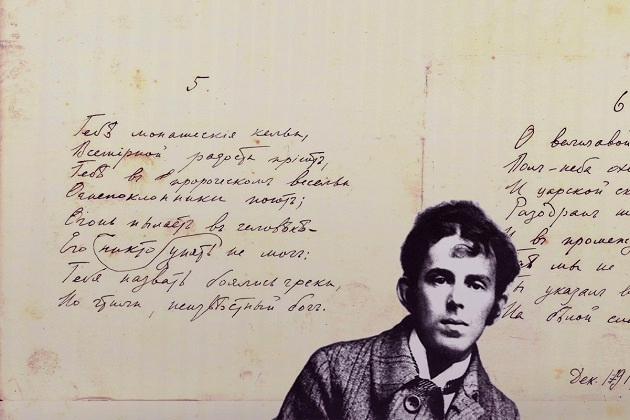 5.
Тебѣ монашескія кельи,
Всемірной радости пріютъ,
Тебѣ въ пророческомъ весельи
Огнепоклонники поютъ;
Огонь пылаетъ въ человѣкѣ-
Его никто унять не могъ:
Тебя назвать боялись греки,
Но чтили, неизвѣстный богъ.
6
О
Полъ-неба
И царской
Разобранъ
въ
мы не
указалъ
На бѣлой
Дек.